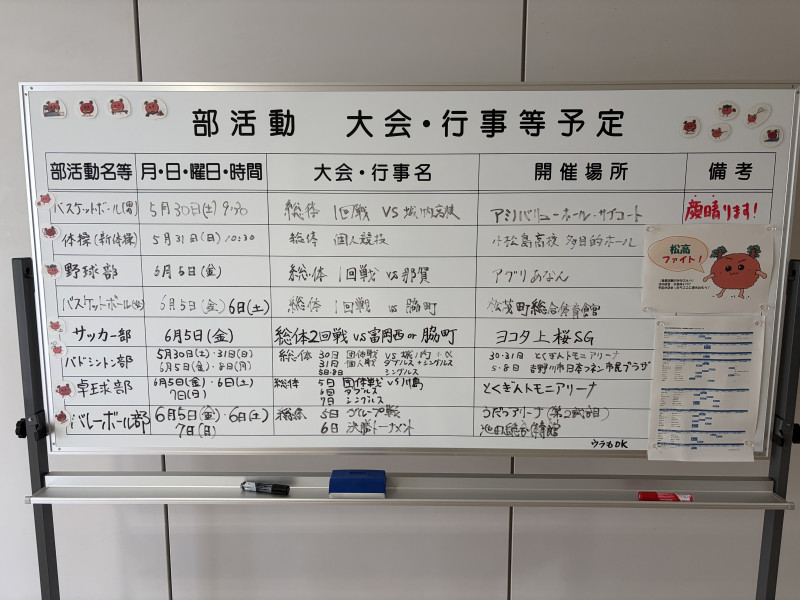 部活動 大会・行事等予定
部活動名等 月・日・曜日・時間 大会・行事名 開催場所 備考
バスケットボール(男) 5月30日(土) 9:30 総体 1回戦 VS 城ノ内高校 アミノバリューホール・サブコート 顔晴ります!
体操(新体操) 5月31日(日) 10:30 総体 個人競技 小松島高校 多目的ホール
野球部 6月6日(金) 総体 1回戦 VS 那賀 アグリあなん
バスケットボール(女) 6月5日(金) 6日(土) 総体 1回戦 vs 脇町 松茂町総合体育館
サッカー部 6月5日(金) 総体2回戦 vs 富岡西 or 脇町 ヨコタ上桜SG
バドミントン部 5月30日(土)・31日(日) 総体 30日 団体戦 vs 城ノ内 30・31日 とくぎんトモニアリーナ
6月5日(金)・8日(月) 31日 個人戦 ダブルス・シングルス 5・8日 吉野川市日本フネン市民プラザ
5日・8日 シングルス
卓球部 6月5日(金)・6日(土) 総体 5日 団体戦 vs 川島 とくぎんトモニアリーナ
7日(日) 6日 ダブルス
7日 シングルス
バレーボール部 6月5日(金)・6日(土) 総体 5日 グループ戦 うだつアリーナ
7日(日) 6日 決勝トーナメント 池田総合体育館
ウラもOK
松高
ファイト!